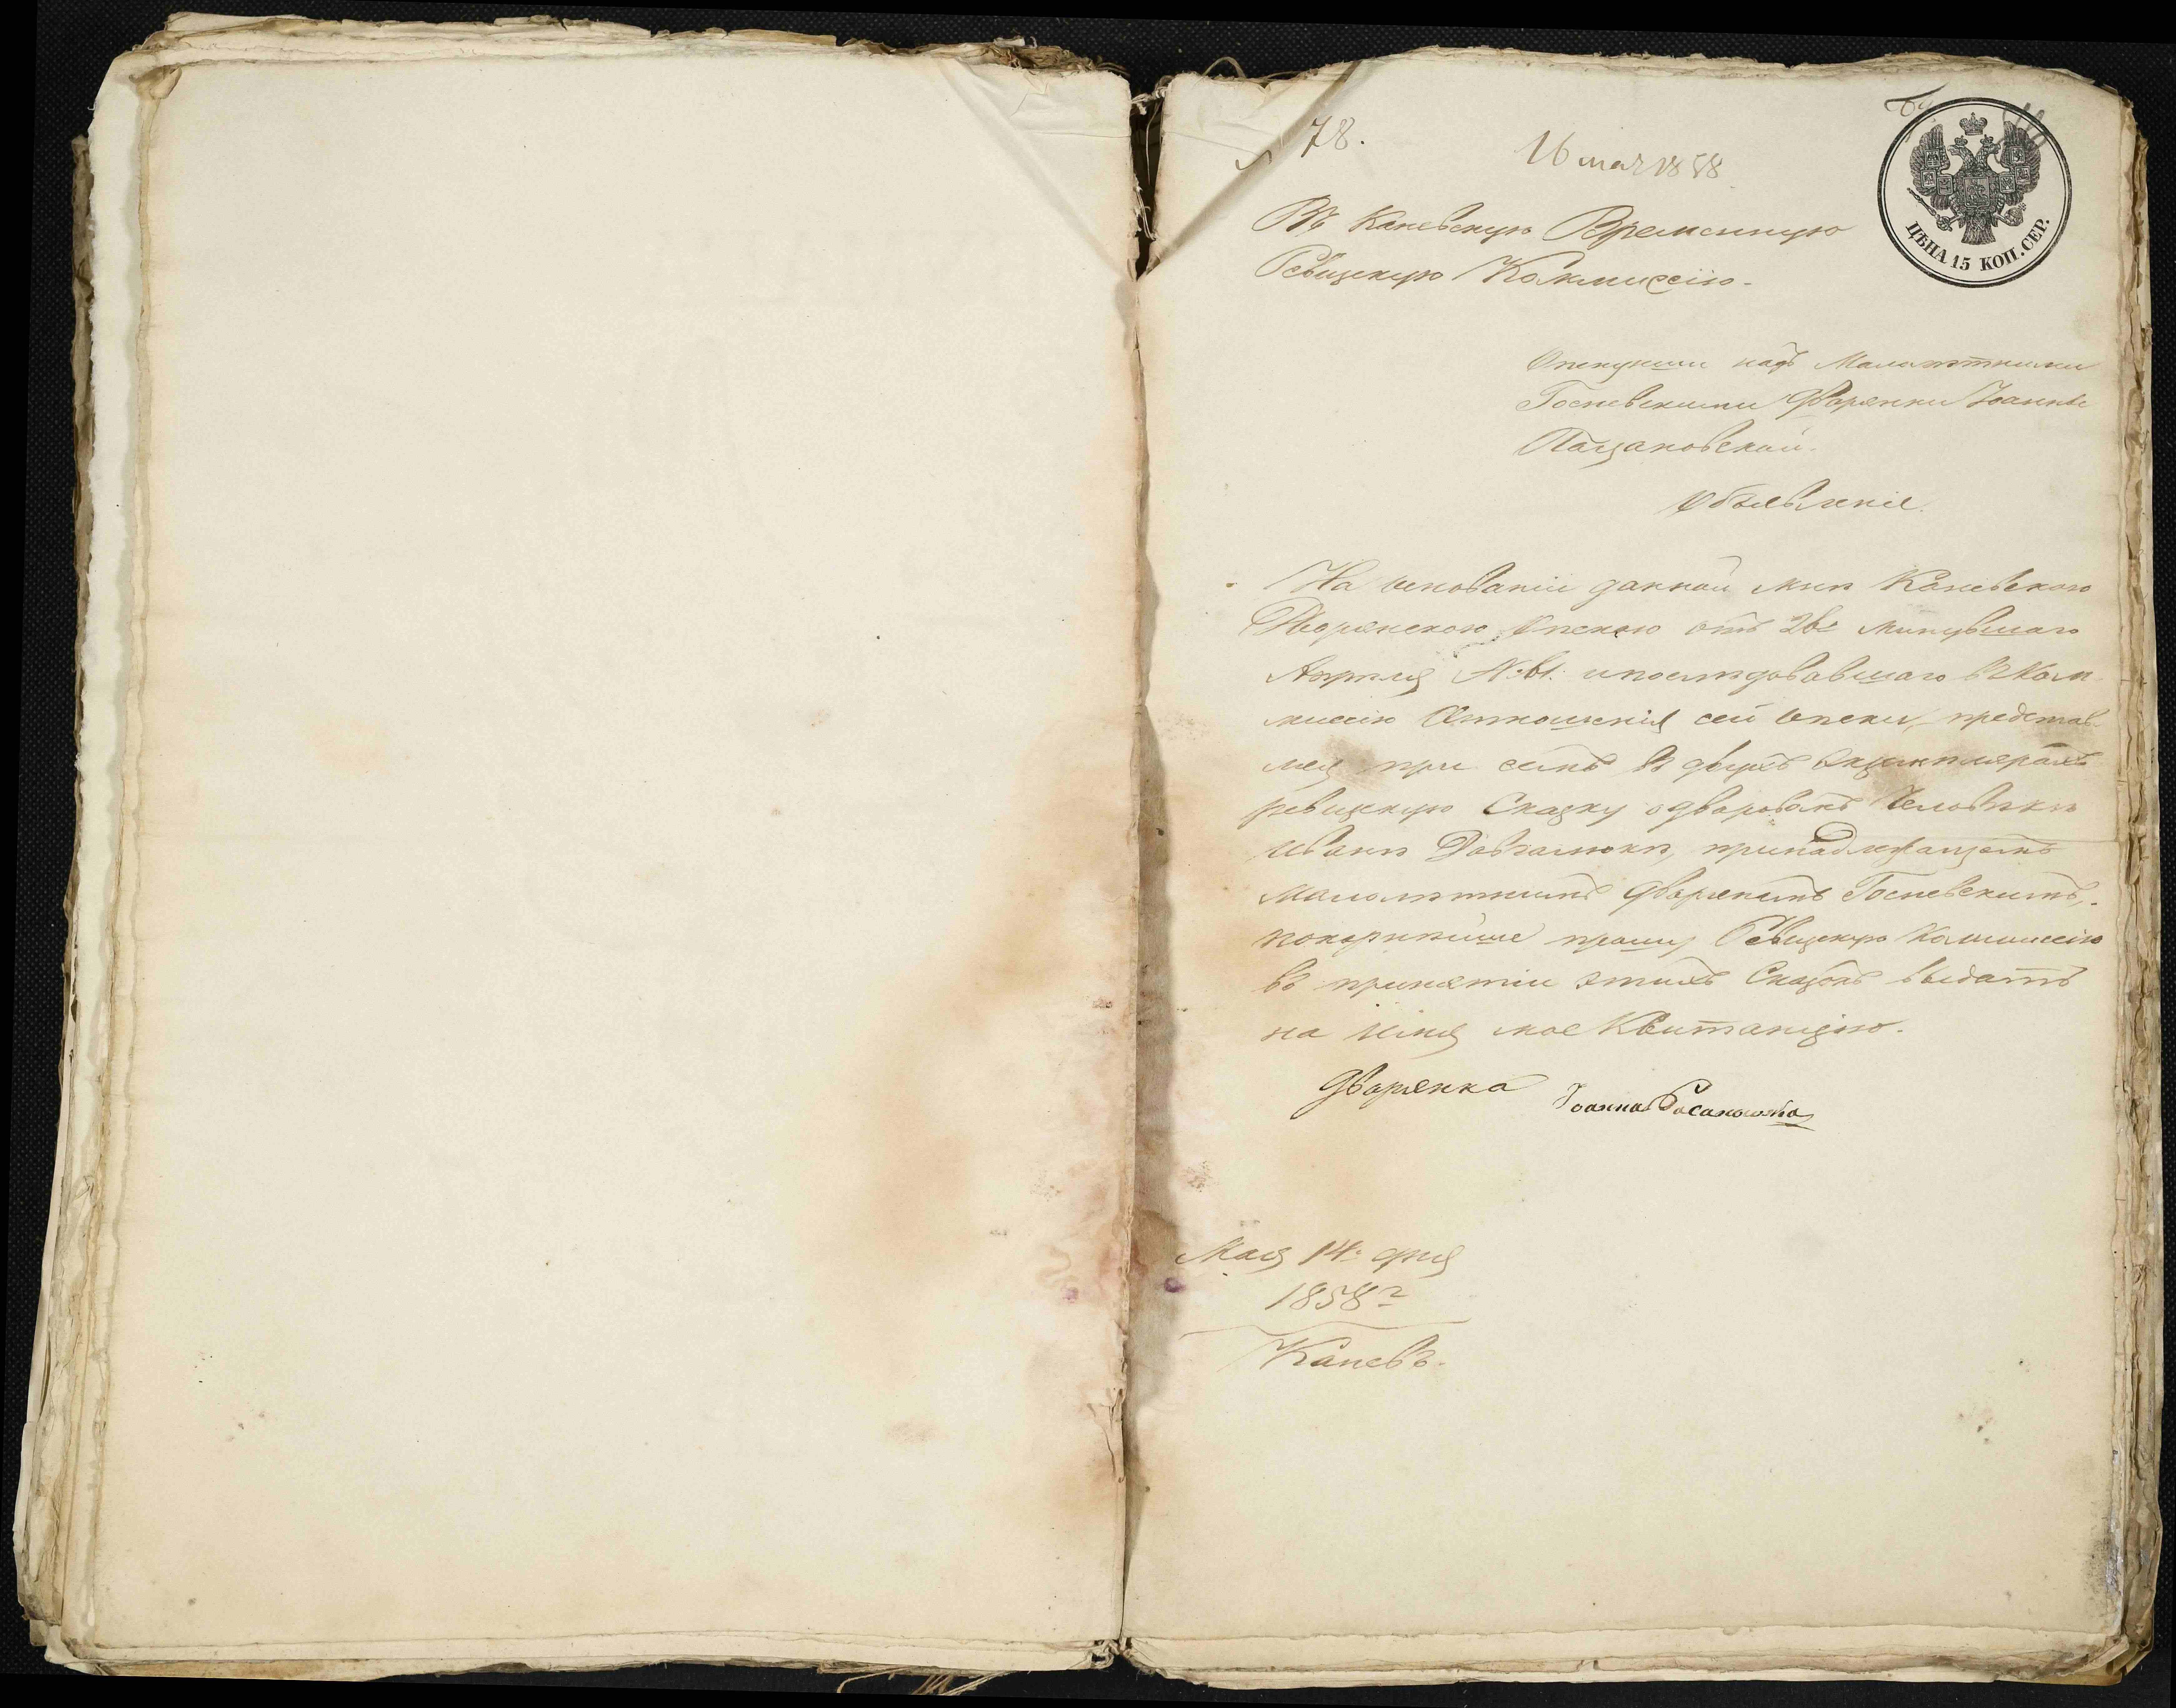 78.
16 мая 1858
ЦѢНА 15 КОП. СЕР.
Въ Каневскую Временную
Ревизскую Коммиссію.
Опекунши надъ Малолѣтними
Госневскими Дворянки Іоанны
Пацановской.
Объявленіе.
На основаніи данной мнѣ Каневскою
Дворянскою Опекою отъ 26 минувшаго
Апрѣля № 61. и послѣдовавшаго въ Ком-
миссію Отношенія сей опеки, представ-
ляя при семъ въ двухъ экземплярахъ
ревизскую Сказку о дворовомъ человѣкѣ
Иванѣ Довгалюкѣ, принадлежащемъ
малолѣтнимъ дворянамъ Госневскимъ,
покорнѣйше прошу Ревизскую Коммиссію
въ принятіи этихъ Сказокъ выдать
на имя мое Квитанцію.
Дворянка Joanna Pacanowska
Мая 14 дня
1858 г
Каневъ.